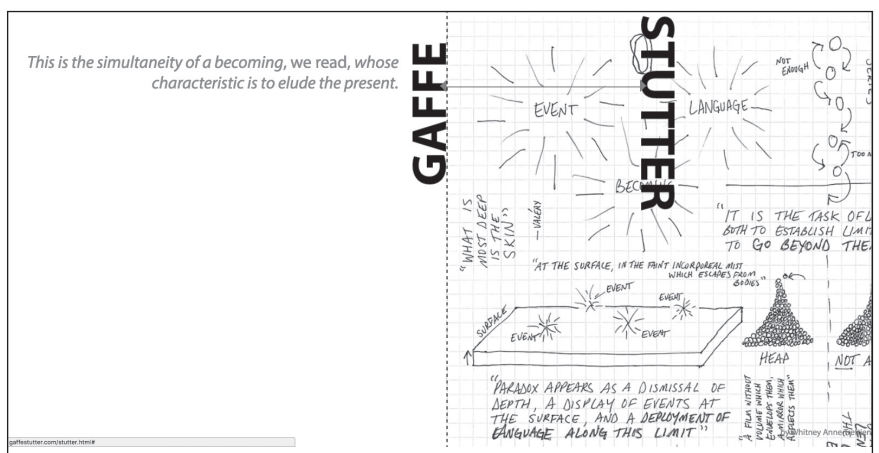 This is the simultaneity of a becoming, we read, whose
characteristic is to elude the present.
GAFFE
STUTTER
EVENT
LANGUAGE
BECOMING
NOT
ENOUGH
TOO
"WHAT IS
MOST DEEP
IS THE
SKIN"
—VALÉRY
"IT IS THE TASK OF
BOTH TO ESTABLISH
TO GO BEYOND
"AT THE SURFACE, IN THE FAINT INCORPOREAL MIST
WHICH ESCAPES FROM
BODIES"
SURFACE
EVENT
EVENT
EVENT
EVENT
HEAP
NOT A
"PARADOX APPEARS AS A DISMISSAL OF
DEPTH, A DISPLAY OF EVENTS AT
THE SURFACE, AND A DEPLOYMENT OF
LANGUAGE ALONG THIS LIMIT"
"A FILM WITHOUT
VOLUME WHICH
ENVELOPS THEM,
A MIRROR WHICH
REFLECTS THEM"
by Whitney Anne
gaffestutter.com/stutter.html#